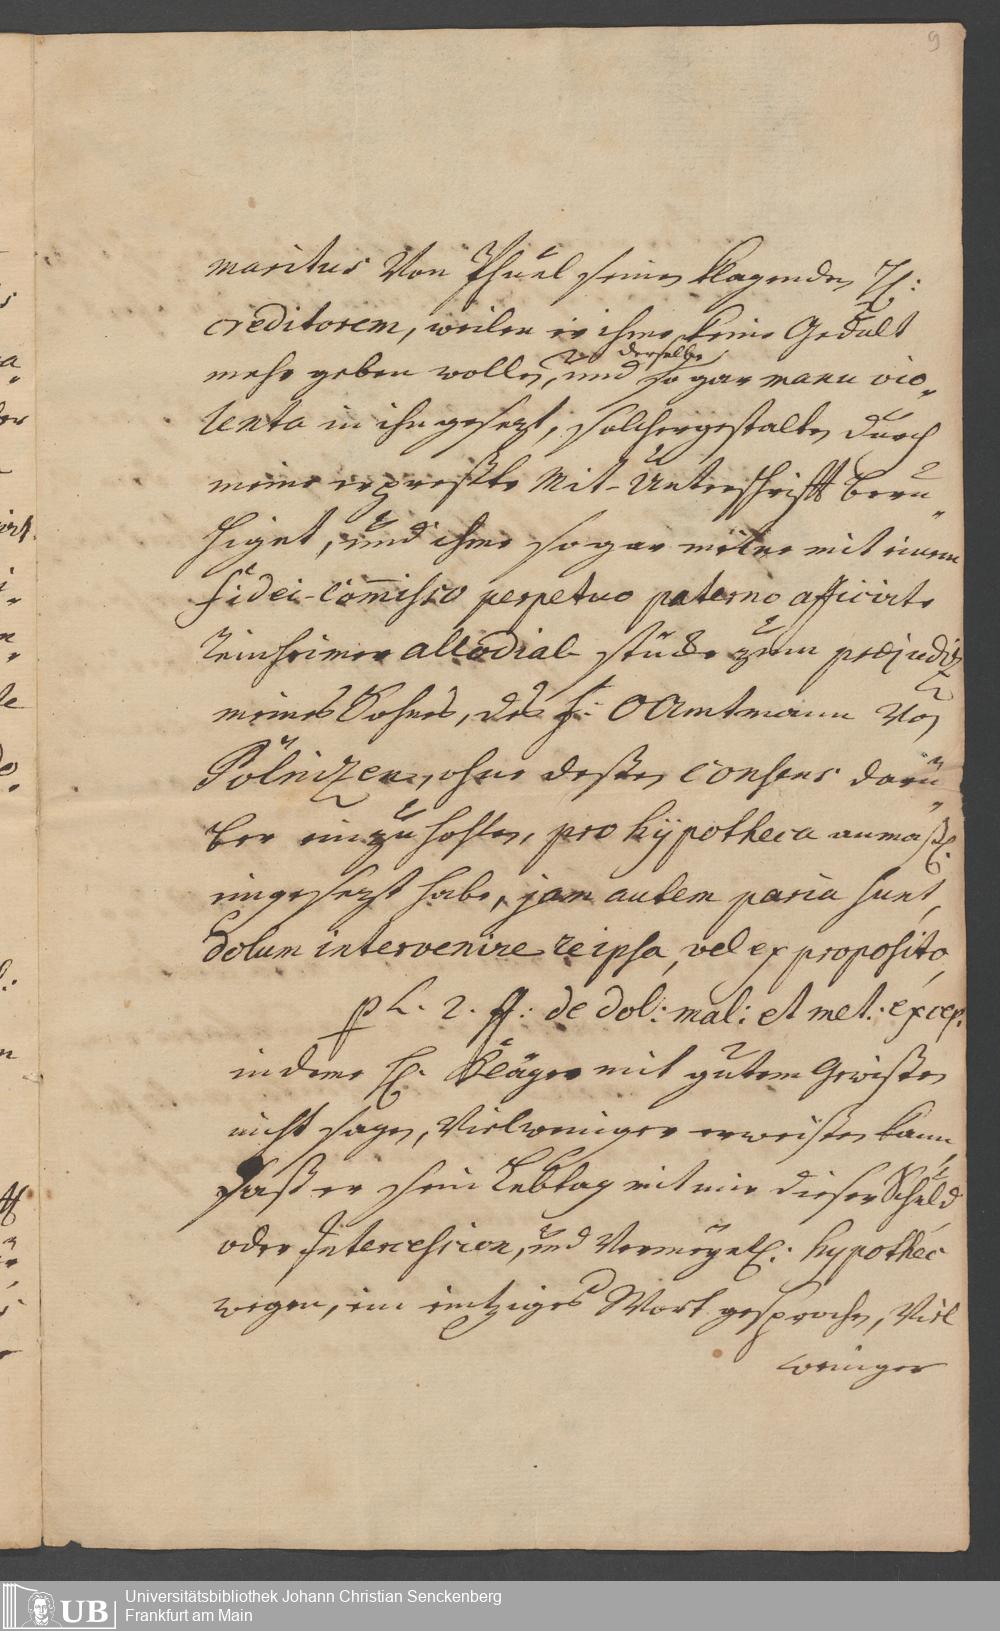 9
maritus Von Pfuel seinen klagenden H:
creditorem, weilen er ihme keine Gedult
mehr geben wollen, und derselbe so gar manu vio„
lenta in ihn gesezt, solchergestalten durch
meine erpreßte Mit-Unterschrifft beru„
higet, und ihme sogar meine mit einem
fidei-Com̅isso perpetuo paterno afficirte
allodial stücke zum præjudiz
meines Sohnes, des H: OAmtmann Von
Pölnizen, ohne deßen consens darü„
ber einzuhohlen, pro hÿpotheca anmaßl.
eingesezt habe, jam autem paria sunt,
dolum intervenire re ipsa, vel ex proposito,
p L. 2. ff: de dol: mal: et met: excep:
indeme H. Kläger mit gutem Gewißen
nicht sagen, Vielweniger erweißen kann,
daß er sein Lebtag mit mir dieser Schuld
oder Intercession, und Vermeyntl: hypothec
wegen, ein eintziges Wort gesprochen, Viel
weniger
Universitätsbibliothek Johann Christian Senckenberg
Frankfurt am Main
UB